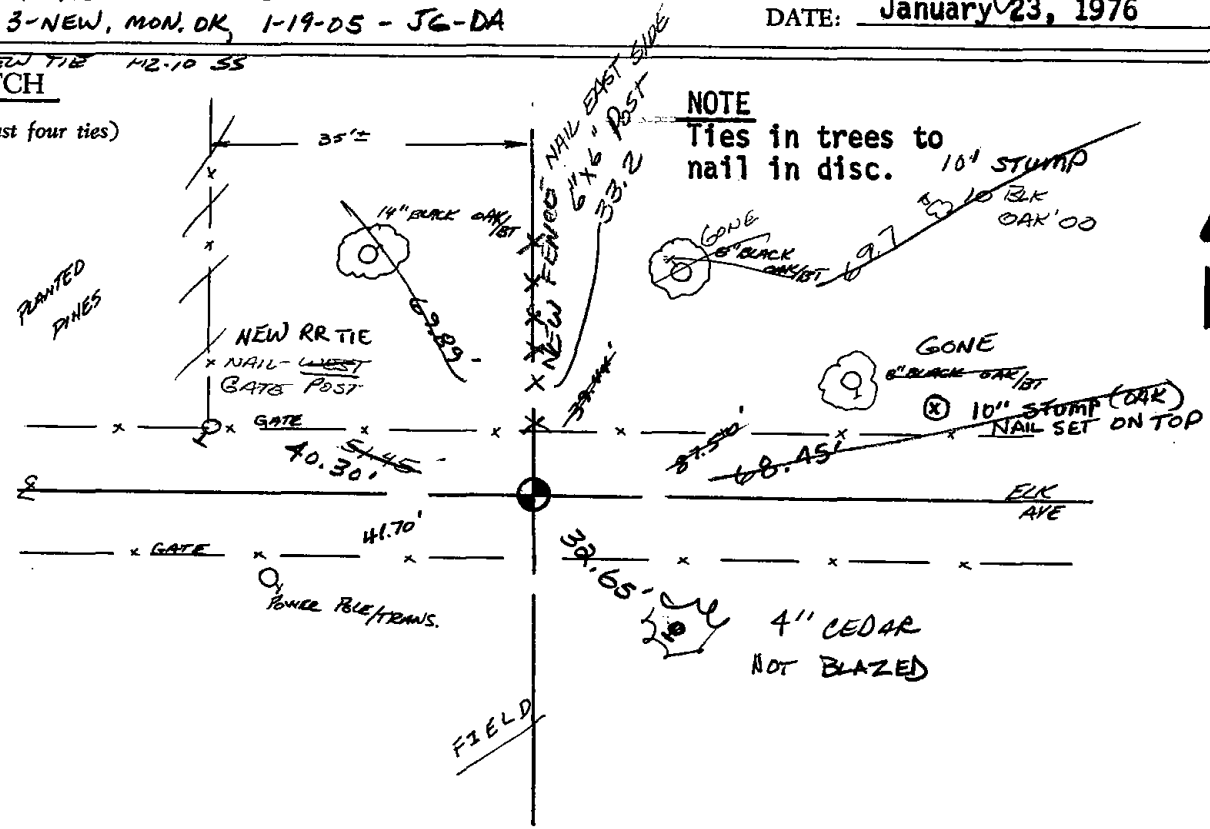 3-NEW, MON. OK, 1-19-05 - JG-DA
DATE: January 23, 1976
EW TIE 1-12-10 SS
TCH
ust four ties)
35'±
NAIL EAST SIDE
6" X 6" POST
33.2
NEW FENCE
NOTE
Ties in trees to
nail in disc.
10" STUMP
10 BLK
OAK '00
69.7
14" BLACK OAK/BT
69.89'
GONE
8" BLACK
OAK/BT
PLANTED
PINES
NEW RR TIE
NAIL - WEST
GATE POST
GONE
8" BLACK OAK/BT
10" STUMP (OAK)
NAIL SET ON TOP
GATE
51.45
40.30'
87.50'
68.45'
ELK
AVE
41.70'
GATE
32.65'
POWER POLE/TRANS.
4" CEDAR
NOT BLAZED
FIELD